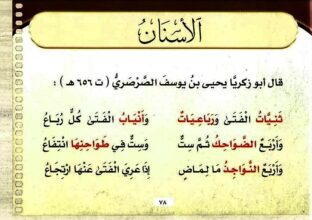 الأسْنَانُ
قال أبو زكريَّا يحيى بنُ يوسفَ الصَّرْصَرِيُّ ( ت ٦٥٦ هـ ) :
ثَنِيَّاتُ الْفَتَىٰ وَرَبَاعِيَاتٌ وَأَنْيَابُ الْفَتَىٰ كُلٌّ رُبَاعُ
وَأَرْبَعٌ الضَّوَاحِكُ ثُمَّ سِتٌّ وَسِتٌّ فِي طَوَاحِنِهَا انْتِفَاعُ
وَأَرْبَعٌ النَّوَاجِذُ مَا لِمَاضٍ إِذَا عَرِيَ الْفَتَىٰ عَنْهَا ارْتِجَاعُ
٧٨